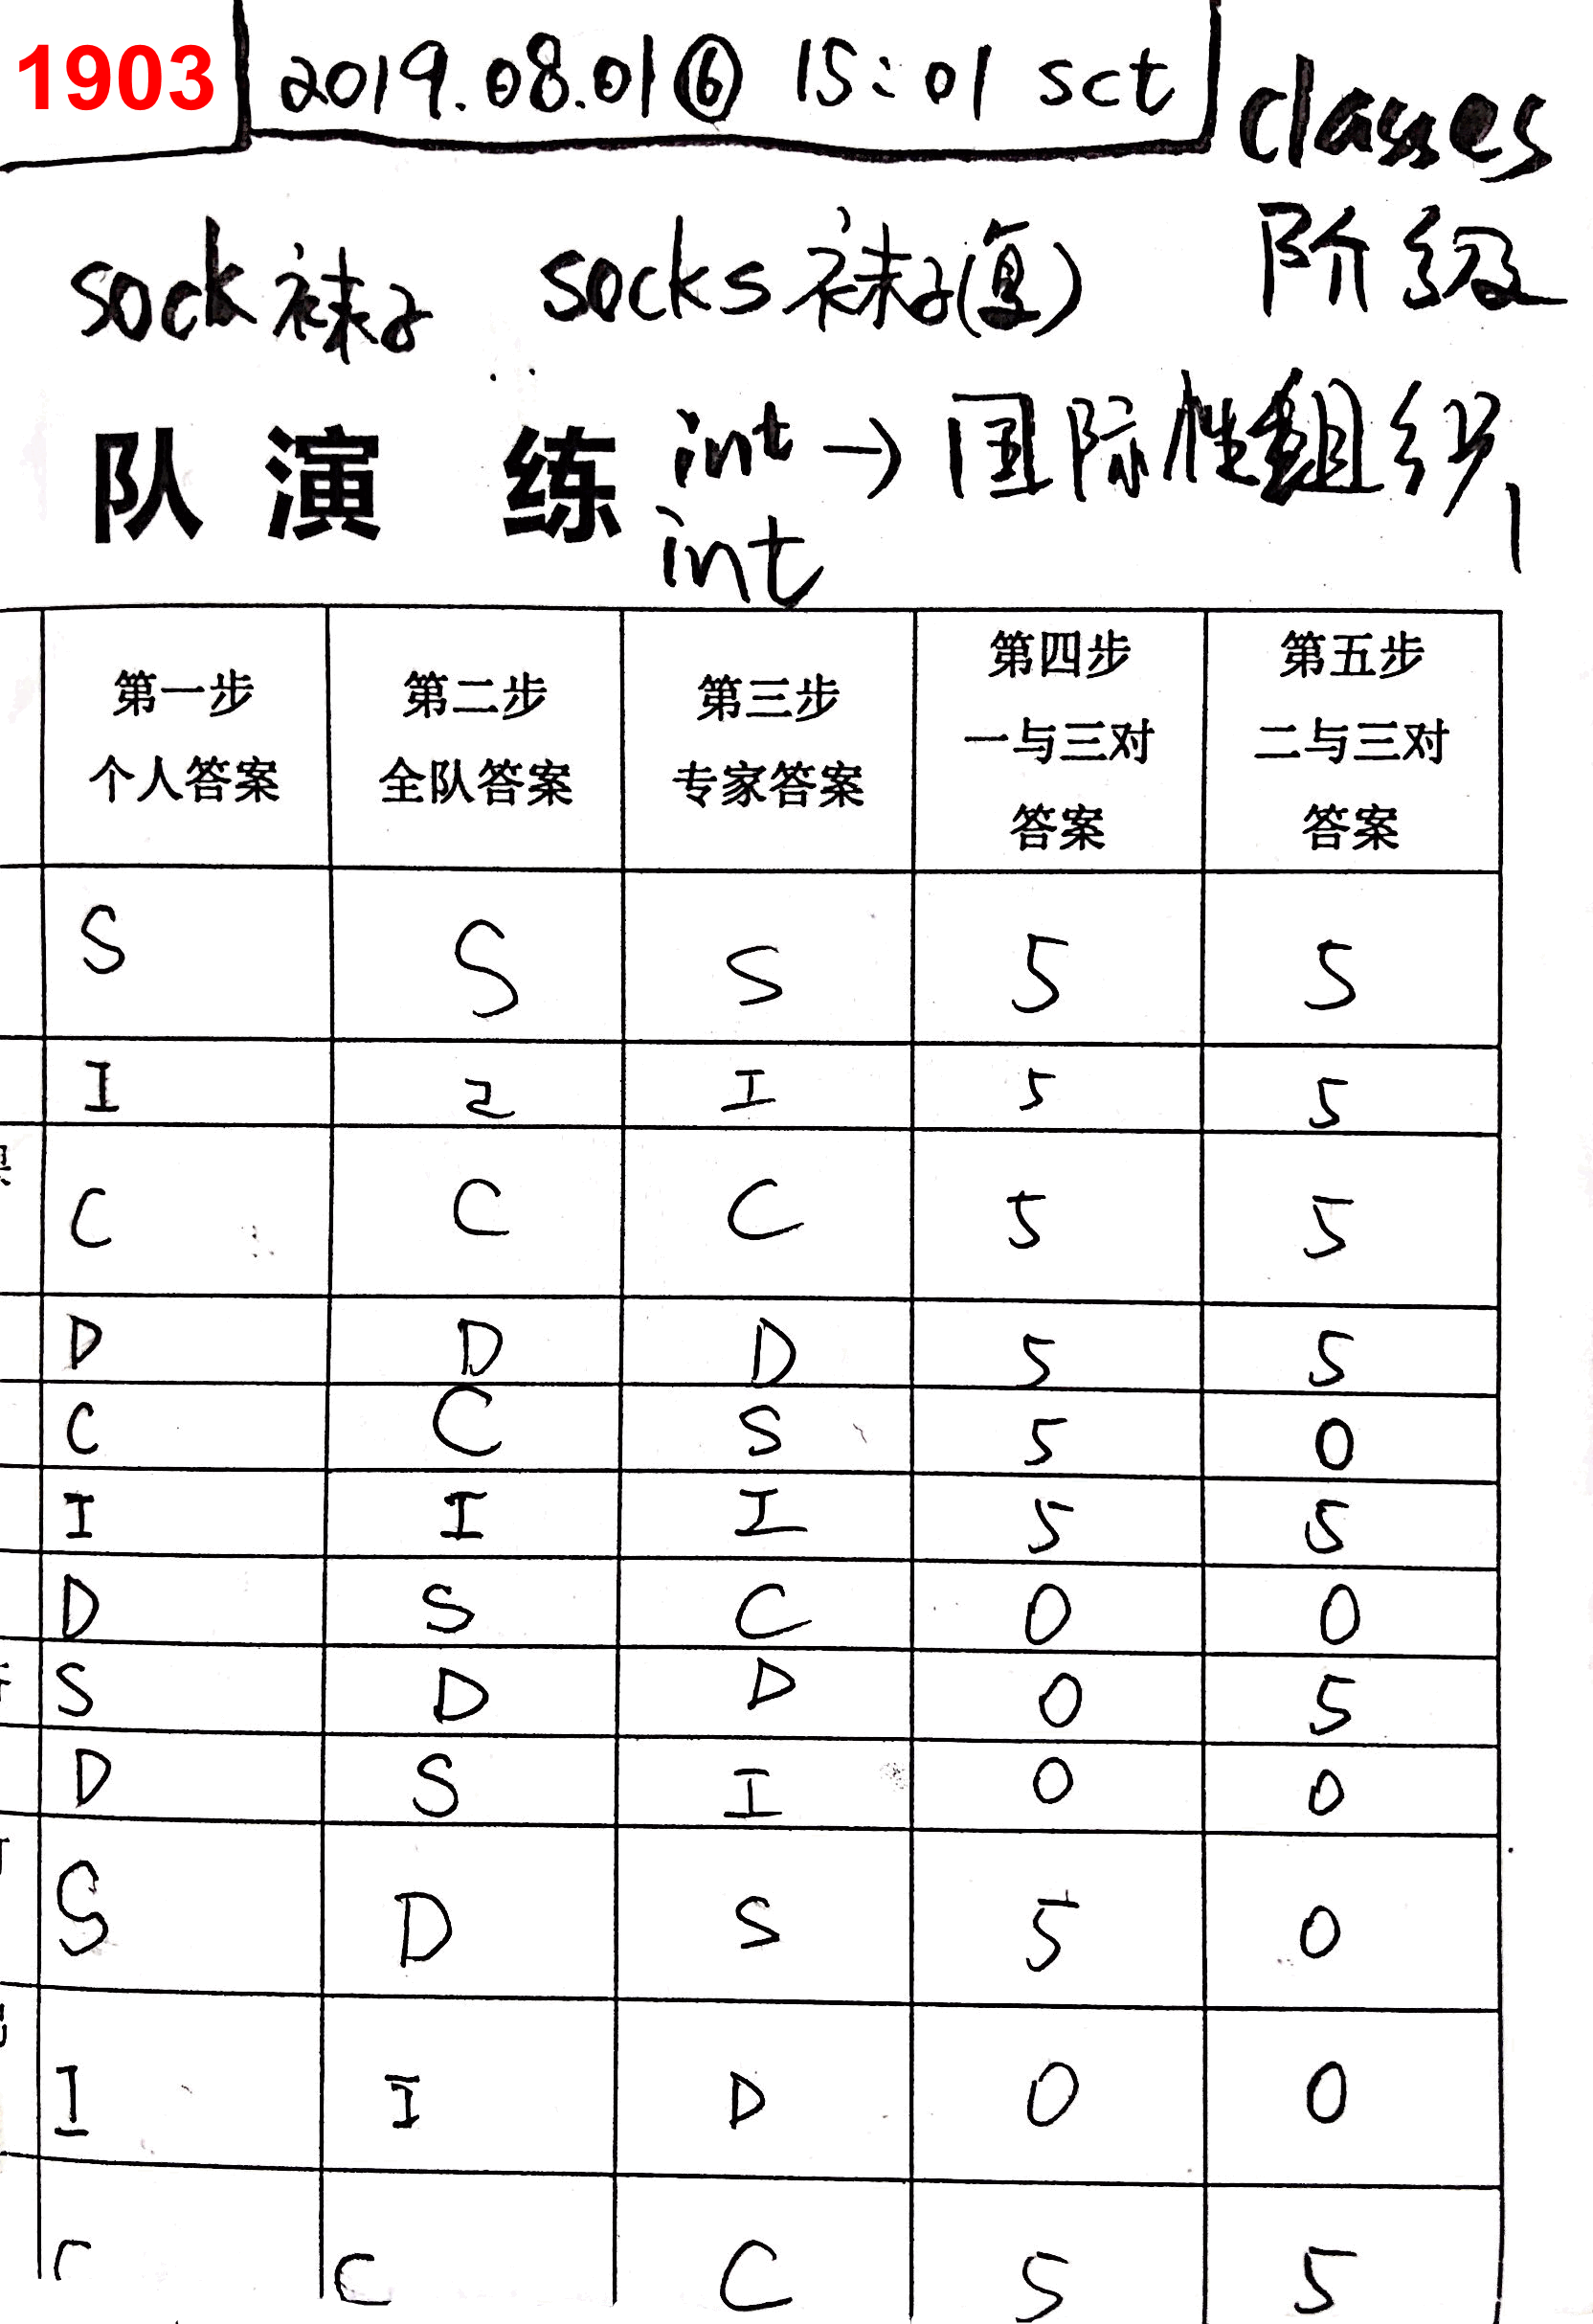 1903
2019.08.01⑥ 15:01 sct
classes
阶级
sock 袜子 socks 袜子(复)
int → 国际性组织
队演 练
int
第一步 个人答案
第二步 全队答案
第三步 专家答案
第四步 一与三对答案
第五步 二与三对答案
S S S 5 5
I I 5 5
C C C 5 5
D D D 5 5
C C S 5 0
I I I 5 5
D S C 0 0
S D D 0 5
D S I 0 0
S D S 5 0
I I D 0 0
C C C 5 5